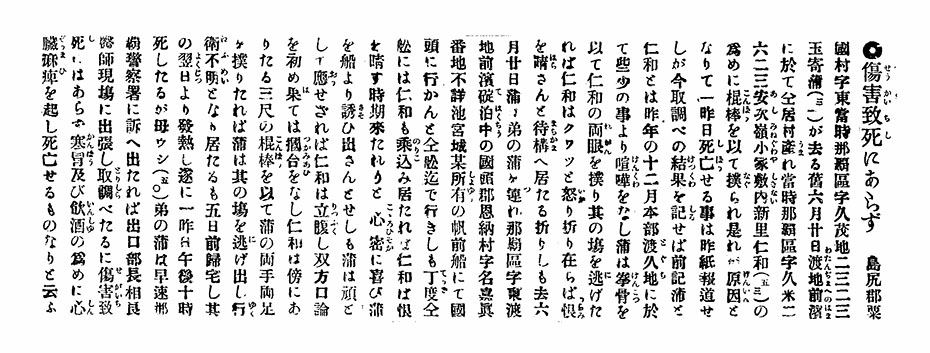 ●傷害致死にあらず　島尻郡粟
國村字東當時那覇區字久茂地二三二三
玉寄蒲(三一)が去る舊六月廿日渡地前濱
に於て仝居村産れ當時那覇區字久米二
六二三安次嶺小家敷内新里仁和(五三)の
爲めに棍棒を以て撲られ是れが原因と
なりて一昨日死亡せる事は昨紙報道せ
しが今取調べの結果を記せば前記蒲と
仁和とは昨年の十二月本部渡久地に於
て些少の事より喧嘩をなし蒲は拳骨を
以て仁和の両眼を撲り其の塲を逃げた
れば仁和はクワッと怒り折り在らば恨
を晴さんと待構へ居たる折りしも去六
月廿日蒲は弟の蒲を連れ那覇區字東渡
地前濱碇泊中の國頭郡恩納村字名嘉眞
番地不詳池宮城某所有の帆前船にて國
頭に行かんと仝舩迄で行きしも丁度仝
舩には仁和も乘込み居たれば仁和は恨
を晴す時期來たれりと心密に喜び蒲
を船より誘ひ出さんとせしも蒲は頑と
して應せざれば仁和は立腹し双方口論
を初め果ては摑合をなし仁和は傍にあ
りたる三尺の棍棒を以て蒲の両手両足
を撲りたれば蒲は其の塲を逃げ出し行
衛不明となり居たるも五日前歸宅し其
の翌日より發熱し遂に一昨日午後十時
死したるが母ウシ(五〇)弟の蒲は早速那
覇警察署に訴へ出たれば出口部長相良
醫師現塲に出張し取調べたるに傷害致
死にはあらず寒冒及び飲酒の爲めに心
臓痲痺を起し死亡せるものなりと云ふ